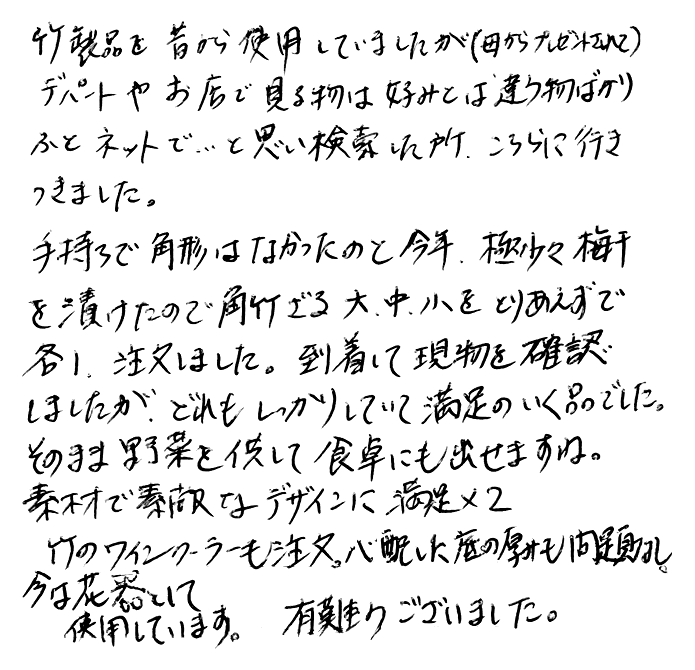 竹製品を昔から使用していましたが(母からプレゼントされて)
デパートやお店で見る物は好みとは違う物ばかり
ふとネットで…と思い検索した所、こちらに行き
つきました。
手持ちで角形はなかったのと今年、極少々梅干
を漬けたので角竹ざる大、中、小をとりあえずで
各1、注文しました。到着して現物を確認
しましたが、どれもしっかりしていて満足のいく品でした。
そのまま野菜を供して食卓にも出せますね。
素材で素敵なデザインに満足×2
竹のワインクーラーも注文。心配した底の厚みも問題なし。
今は花器として
使用しています。 有難うございました。